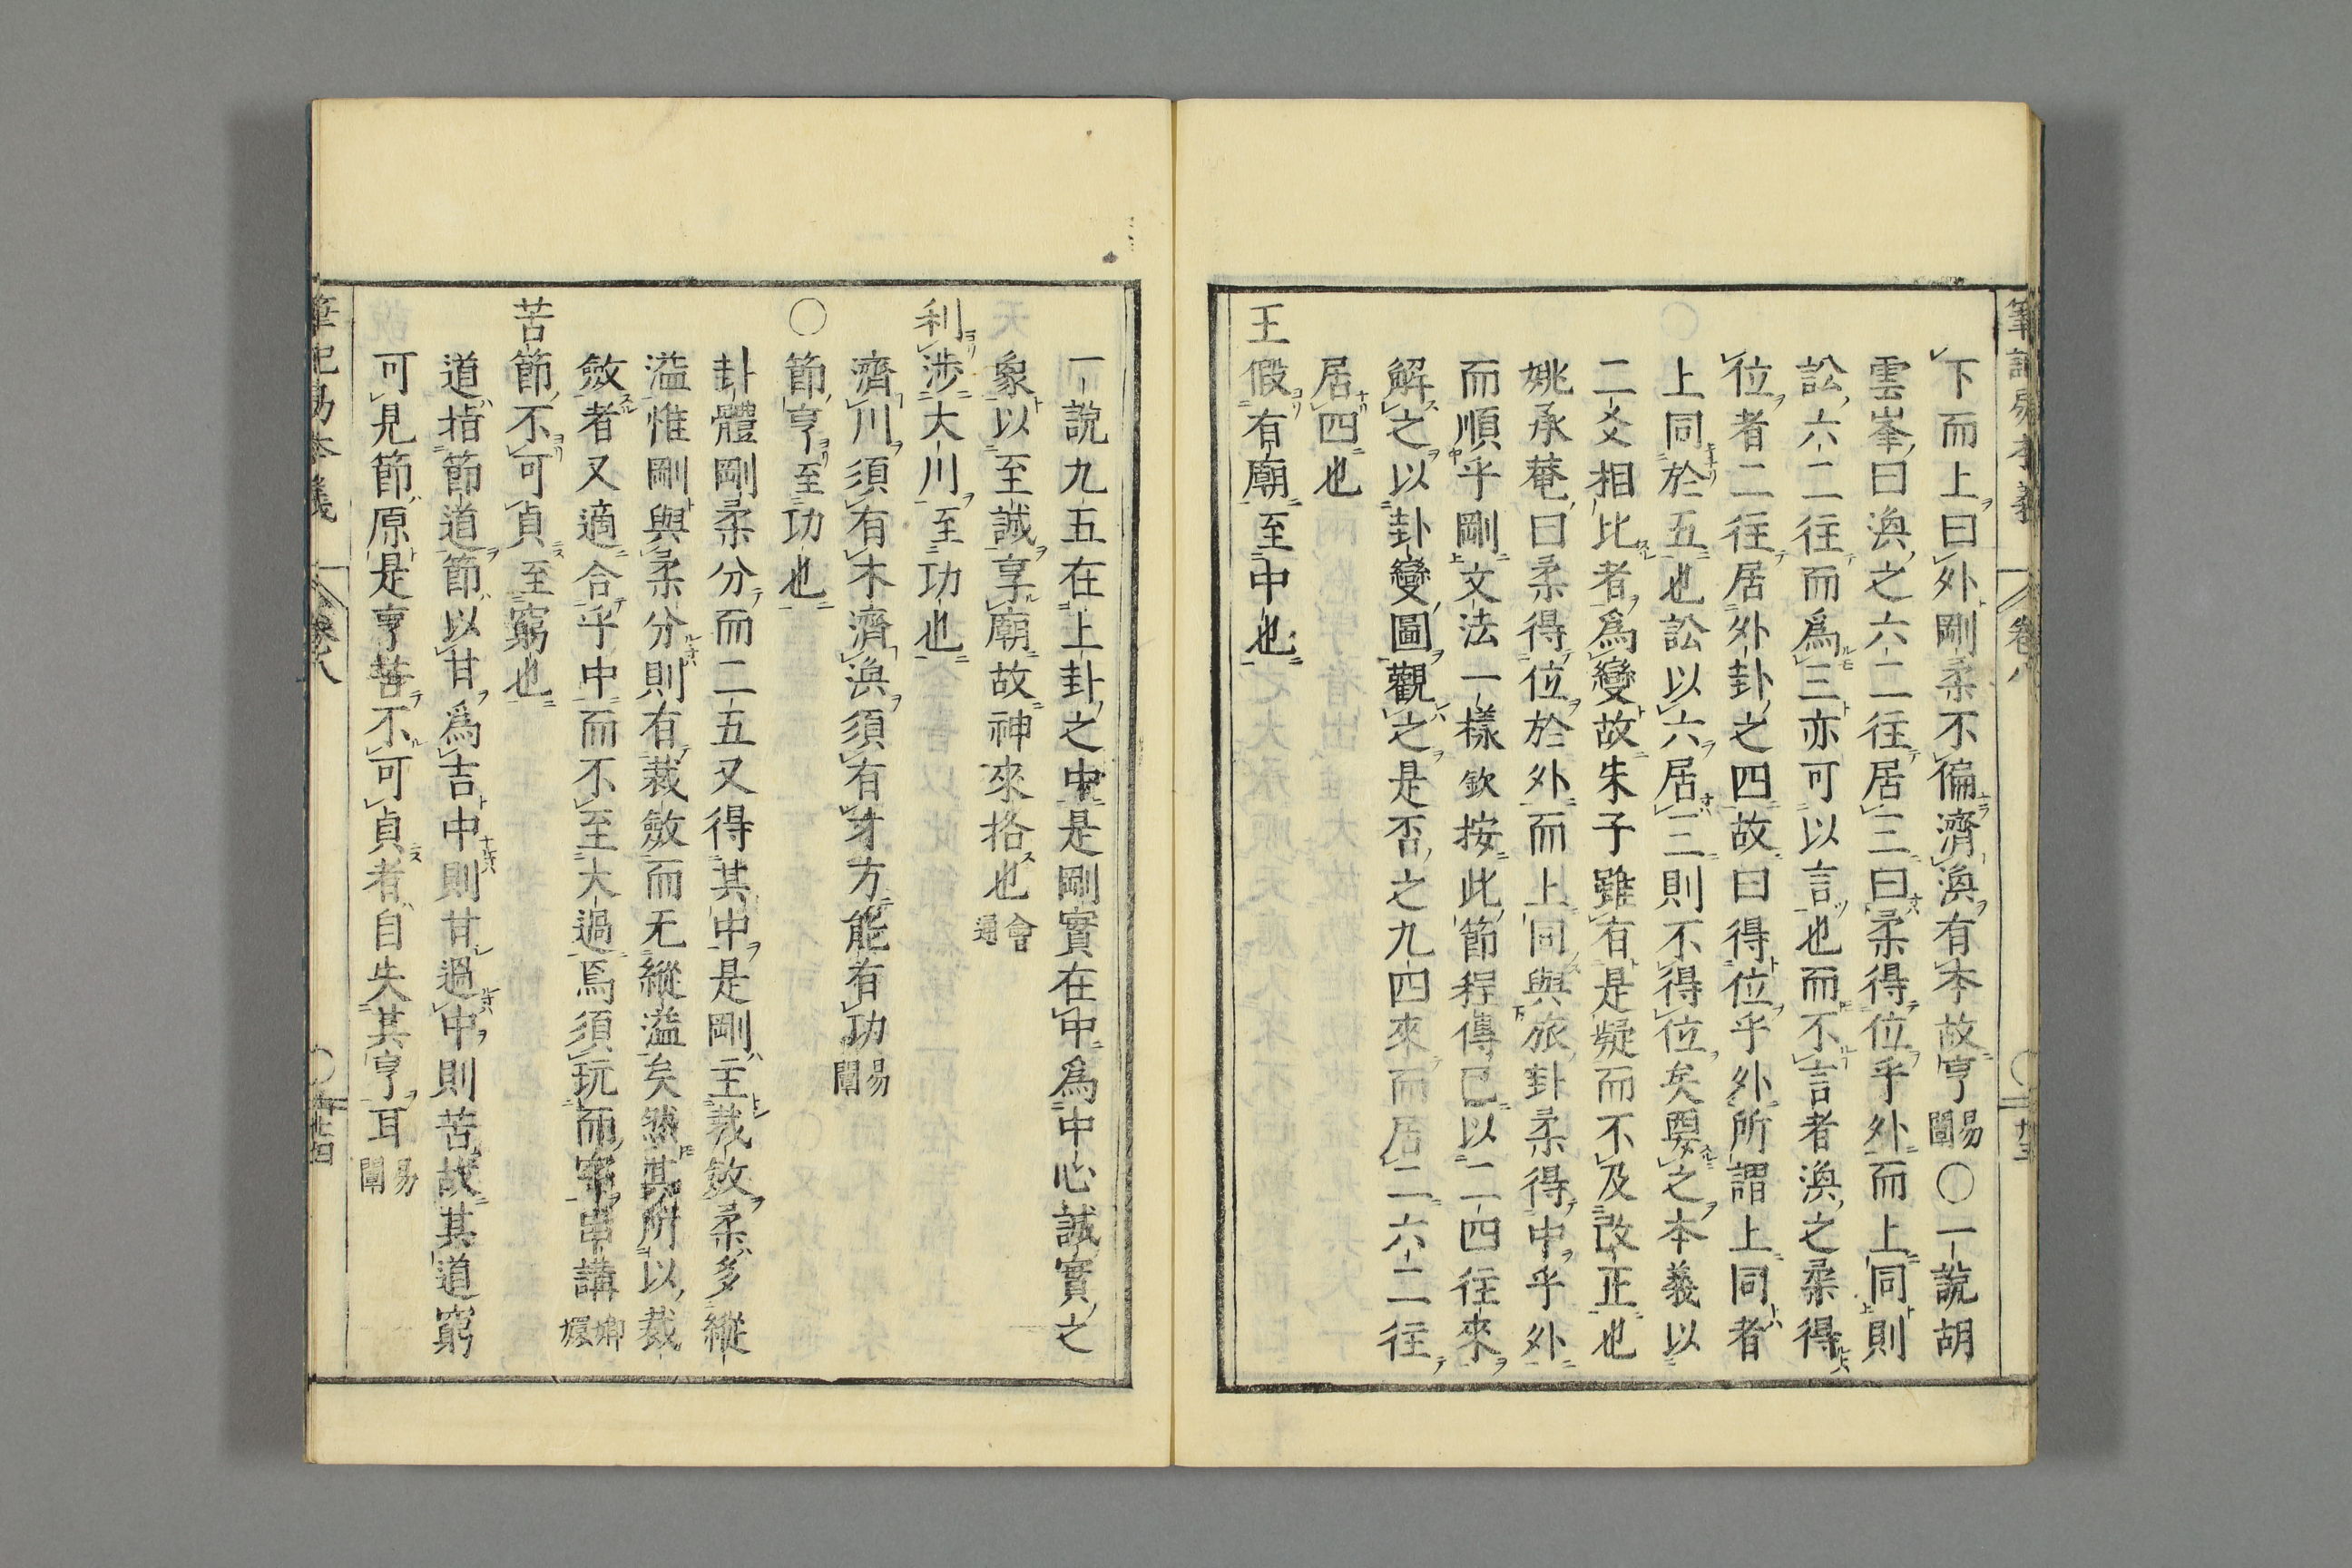 筆記易本義 卷八 九三
下而上曰外剛柔不偏濟渙有本故亨易闡〇一說胡
雲峯曰渙之六二往居三曰柔得位乎外而上同則
訟六二往而爲三亦可以言也而不言者渙之柔得
位者二往居外卦之四故曰得位乎外所謂上同者
上同於五也訟以六居三則不得位矣要之本義以
二爻相比者爲變故朱子雖有是疑而不及改正也
姚承菴曰柔得位於外而上同與旅卦柔得中乎外
而順乎剛文法一樣欽按此節程傳已以二四往來
解之以卦變圖觀之是否之九四來而居二六二往
居四也
王假有廟至中也
一說九五在上卦之中是剛實在中爲中心誠實之
象以至誠享廟故神來格也會通
利涉大川至功也
濟川須有木濟渙須有才方能有功易闡
〇節亨至功也
卦體剛柔分而二五又得其中是剛主裁斂柔多縱
溢惟剛與柔分則有裁斂而无縱溢矣然其所以裁
斂者又適合乎中而不至大過焉須玩而字串講嫏嬛
苦節不可貞至窮也
道指節道節以甘爲吉中則甘過中則苦故其道窮
可見節原是亨苦不可貞者自失其亨耳易闡
筆記易本義 卷八